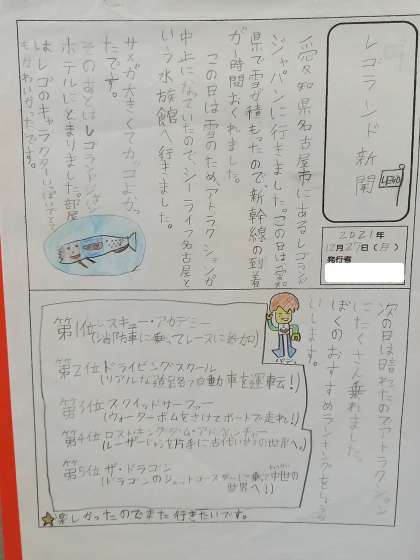 レゴランド新聞
LEGO
2021年
12月27日(月)
発行者
愛知県名古屋市にあるレゴランド
ジャパンに行きました。この日は愛知
県で雪が積もったので新幹線の到着
が1時間おくれました。
この日は雪のため、アトラクションが
中止になっていたので、シーライフ名古屋と
いう水族館へ行きました。
サメが大きくてカッコよかっ
たです。
そのあとはレゴランドジャパン
ホテルにとまりました。部屋
はレゴのキャラクターがいっぱいでとて
もかわいかったです。
次の日は晴れたのでアトラクション
にたくさん乗れました。
ぼくのおすすめランキングをしょうか
いします。
第1位 レスキュー・アカデミー
(消防車に乗ってレースに参加)
第2位 ドライビングスクール
(リアルな道路で自動車を運転!)
第3位 スクイッドサーファー
(ウォーターボムをさけてボートで走れ!)
第4位 ロスト・キングダム・アドベンチャー
(レーザーじゅうを片手に古代いせきの世界へ。)
第5位 ザ・ドラゴン
(ドラゴンのジェットコースターに乗り中世の
世界へ!)
楽しかったのでまた行きたいです。